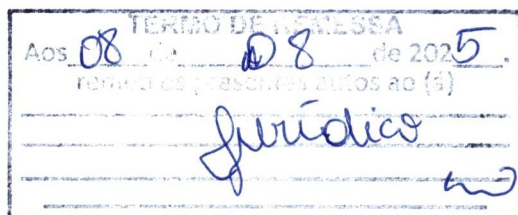 TERMO DE REMESSA
Aos 08 de 08 de 2025.
remeto os presentes autos ao (à)
Jurídico